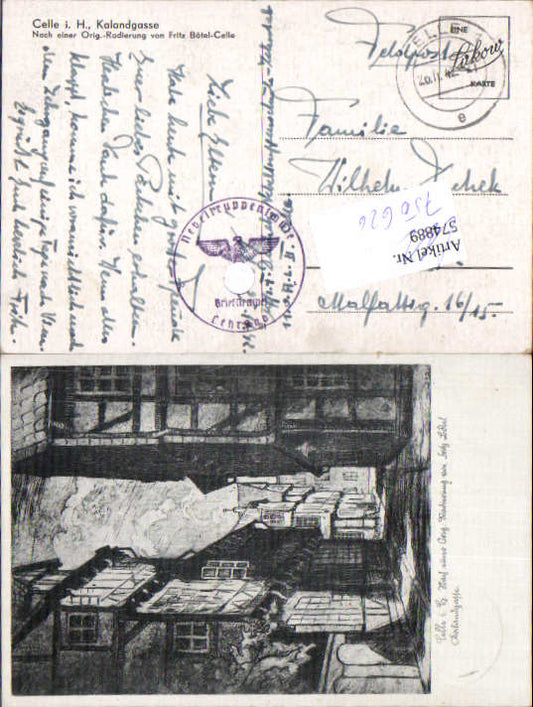 Celle i. H., Kalandgasse
Nach einer Orig.-Radierung von Fritz Bötel-Celle
Feldpost
EINE
KARTE
CELLE
20.11.42
e
Familie
Wilhelm
Malfattig. 16/15.
750626
574889
Artikel Nr.
Nebeltruppenschule
Briefstempel
Lehr
Liebe Eltern
Habe heute mit großer Freude
Euer liebes Päckchen erhalten.
Herzlichen Dank dafür. Wenn alles
klappt, komme ich voraussichtlich nach
dem Lehrgang auf einige Tage nach Wien.
Es grüßt Euch herzlich
Celle i. H. Nach einer Orig. Radierung von Fritz Bötel
Kalandgasse